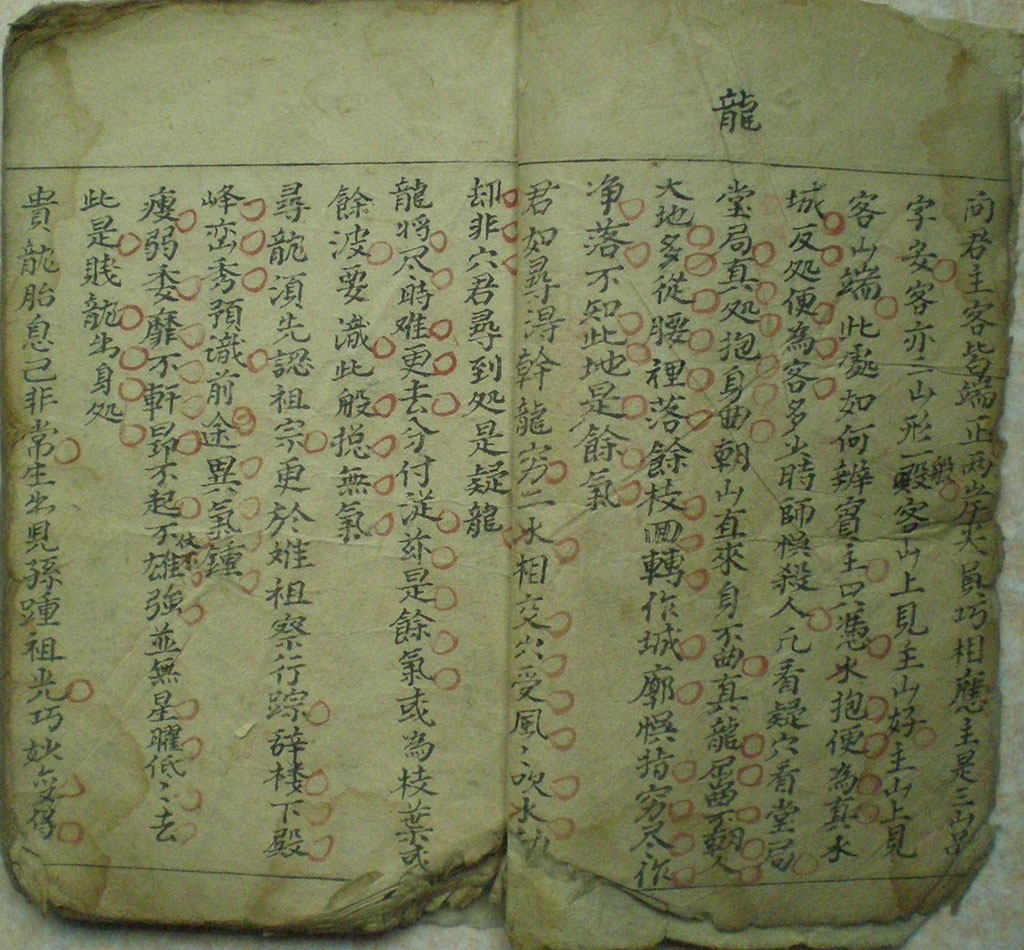 龍
問君主客皆端正两岸尖員巧相應主是三山品
字安客亦三山形一般客山上見主山好主山上見
客山端此處如何辨賓主只憑水抱便為真水
城反处便為客多少時師悞殺人凢看疑穴看堂局
堂局真处抱身曲朝山直來身不曲真龍屈曲不朝人
大地多從腰裡落餘枝回轉作城廓悞指穷尽作
净落不知此地是餘氣
君如尋淂幹龍穷二水相交穴受風〻吹水劫
却非穴君尋到处是疑龍
龍將尽時难更去分付從茲是餘氣或為枝葉或
餘波要識此般捴無氣
尋龍湏先認祖宗更於雄祖察行踪辞楼下殿
峰峦秀預識前途異氣鍾
瘦弱委靡不軒昻不起不伏不雄強並無星曜低〻去
此是賎龍出身处
貴龍胎息己非常生出兒孫踵祖光巧妙